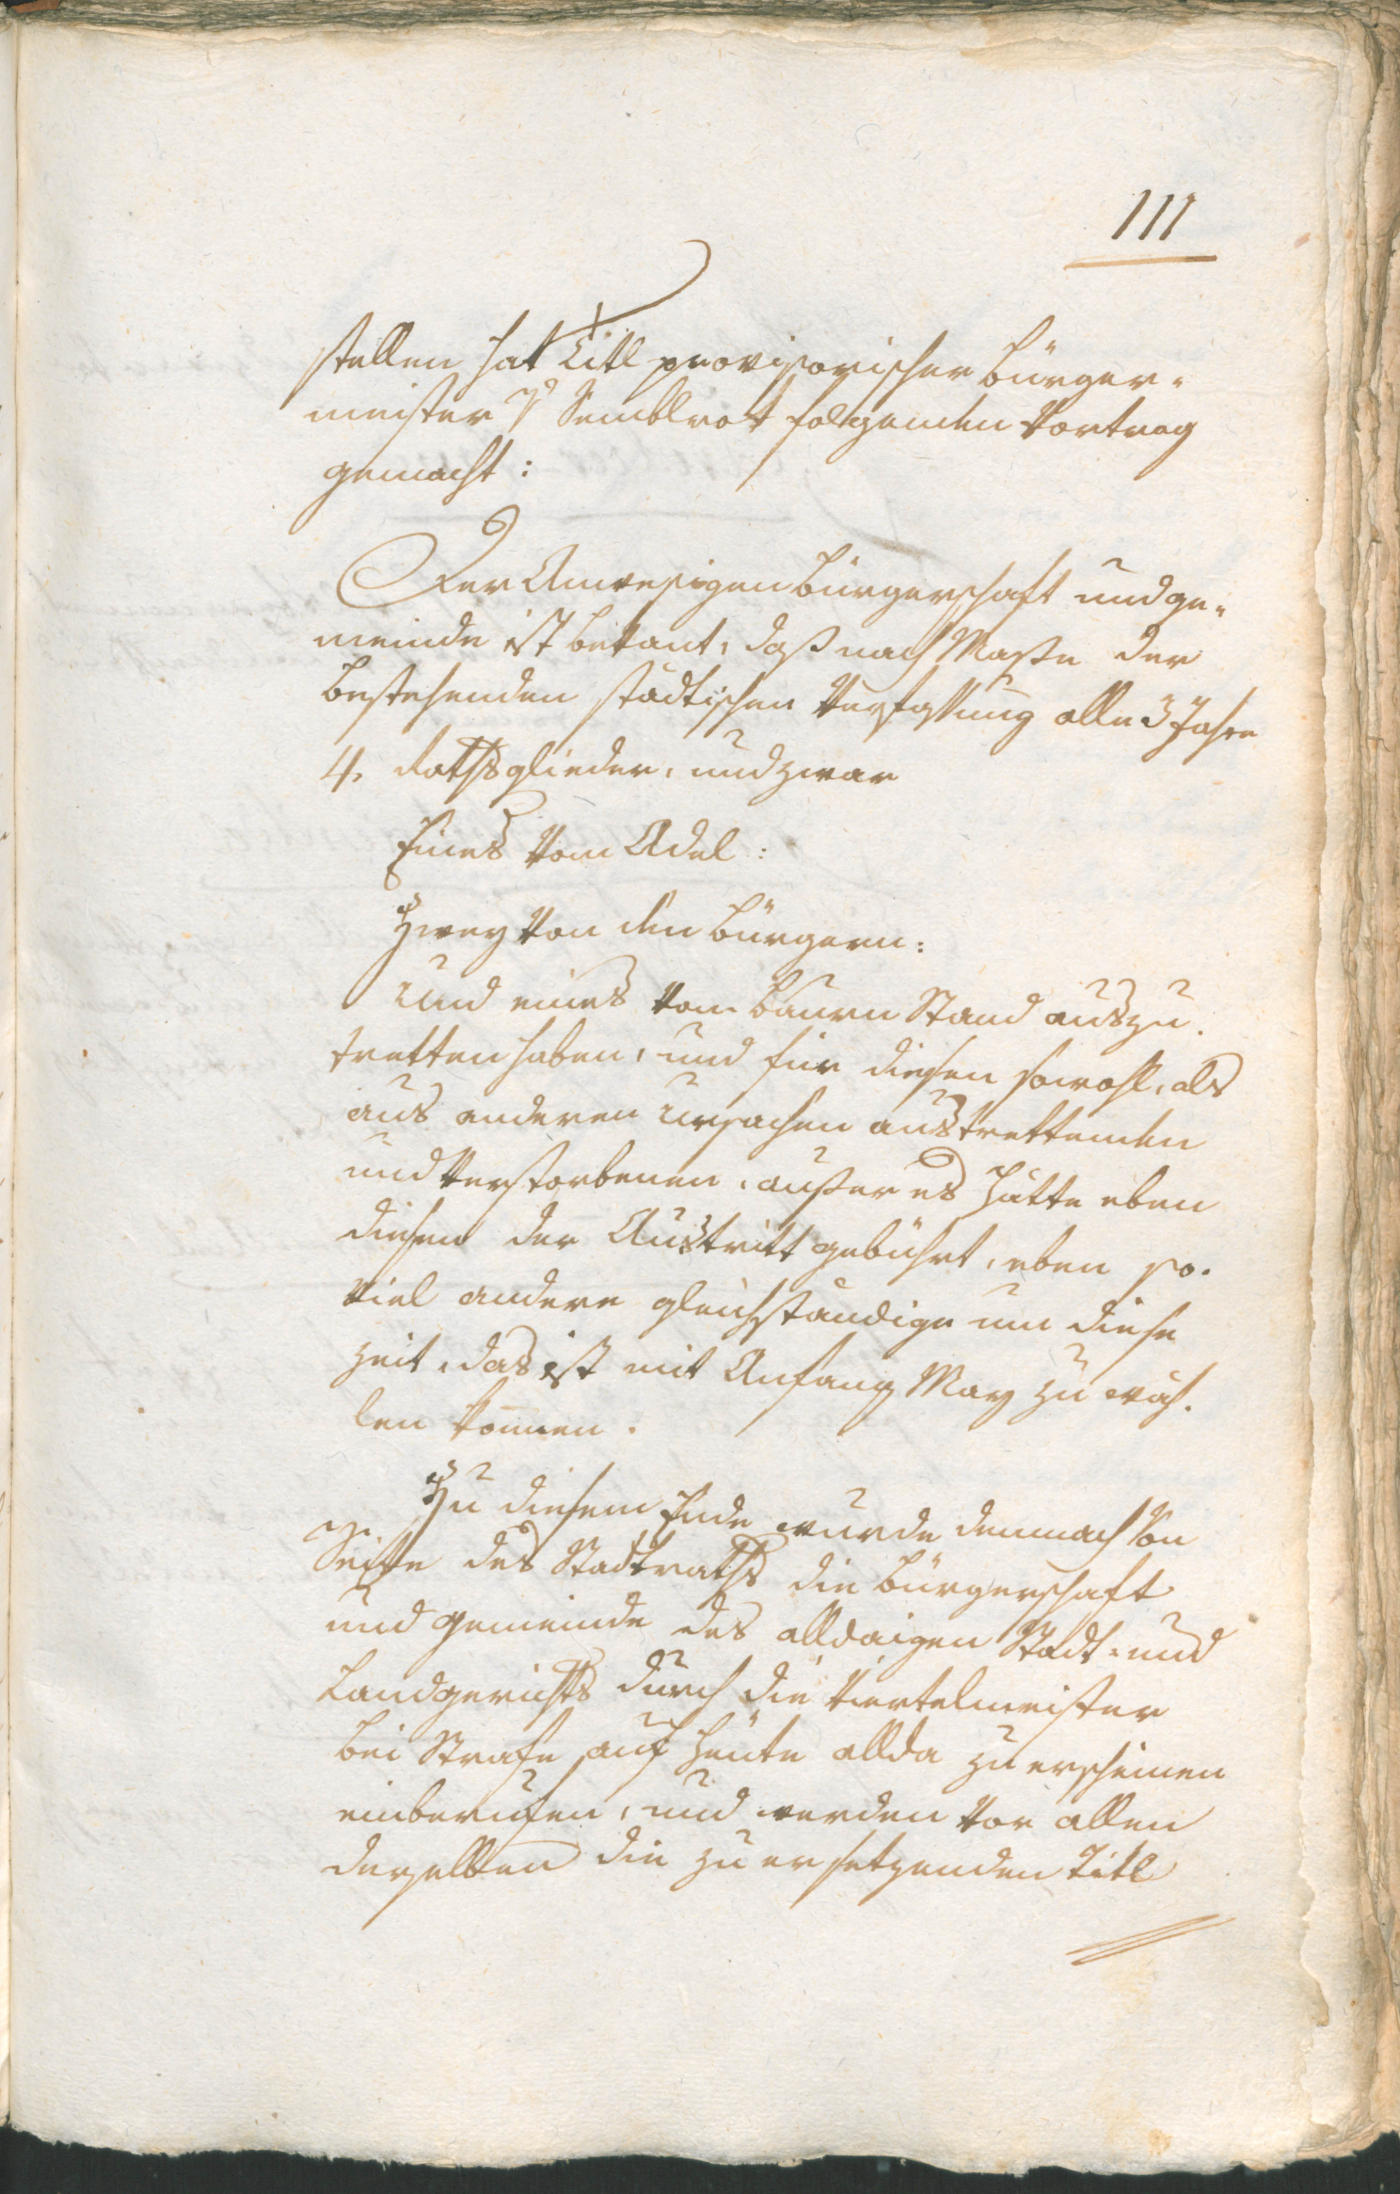 111
stellen hat Titl provisorischer Bürger-
meister H Semblrok folgenden Vortrag
gemacht:
Der Anwesigen Bürgerschaft und ge-
meinde ist bekant, daß nach Maße der
bestehenden städtischen Verfassung alle 3 Jahre
4. Rathsglieder, und zwar
Eines vom Adel:
Zwey von den Bürgern:
Und eines vom Bauern Stand auszu-
tretten haben, und für diesen sowohl, als
aus anderen Ursachen austrettenden
und verstorbenen, außer es hätte eben
diesen der Austritt gebührt, eben so-
viel andere gleichständige um diese
Zeit, das ist mit Anfang May zu wäh-
len kommen.
Zu diesem Ende wurde demnach Von
Seite des Stadtraths die Bürgerschaft
und Gemeinde des alldaigen Stadt- und
Landgerichts durch die Viertelmeister
bei Strafe auf heute allda zu erscheinen
einberufen, und werden vor allen
derselben die zu ersetzenden Titl